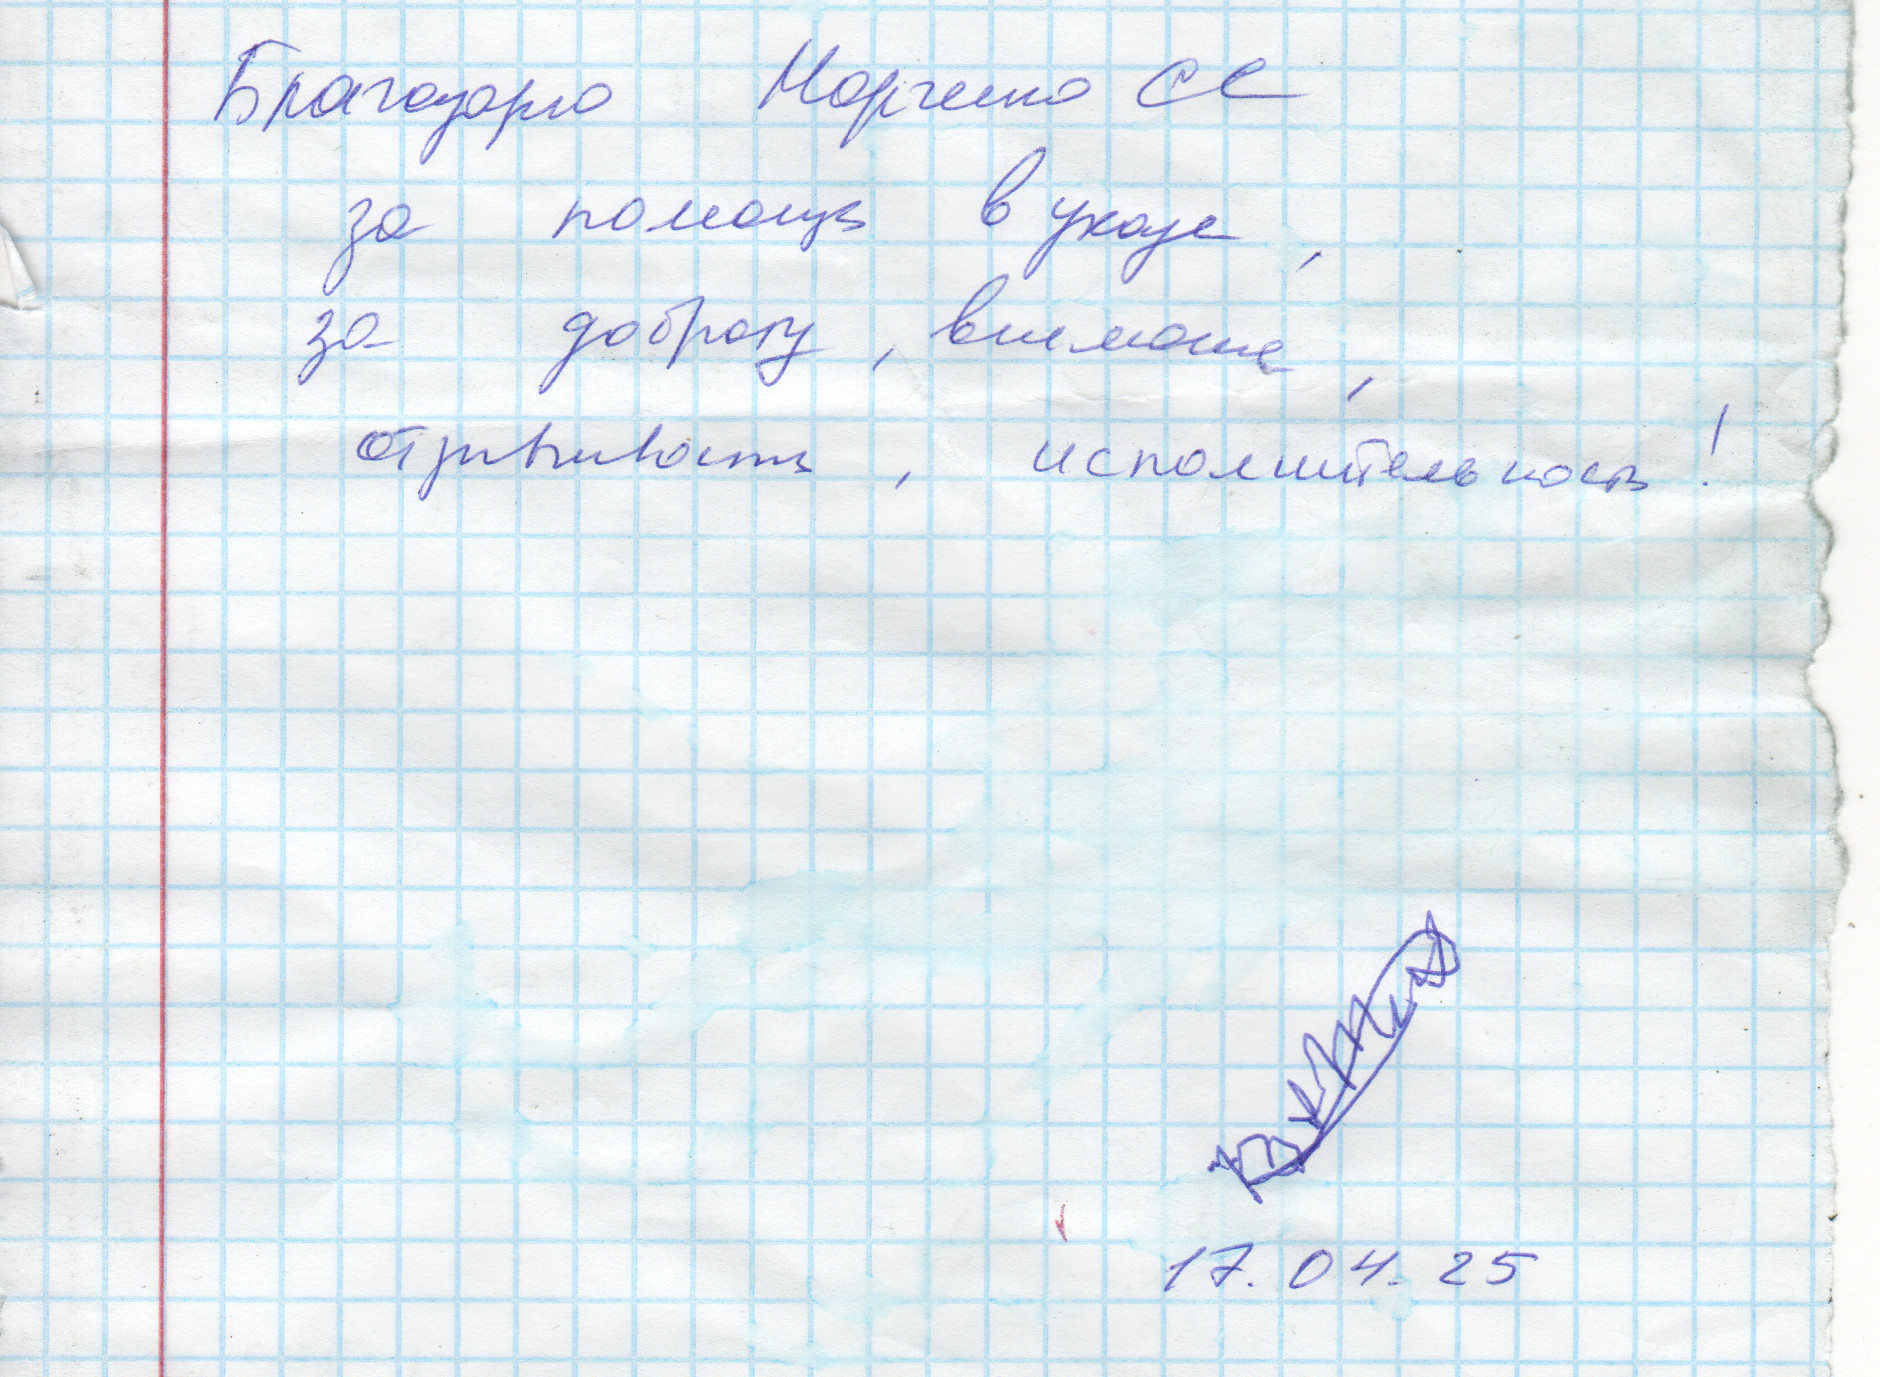 Благодарю Марченко СС
за помощь в уходе,
за доброту, внимание,
отзывчивость, исполнительность!
17.04.25